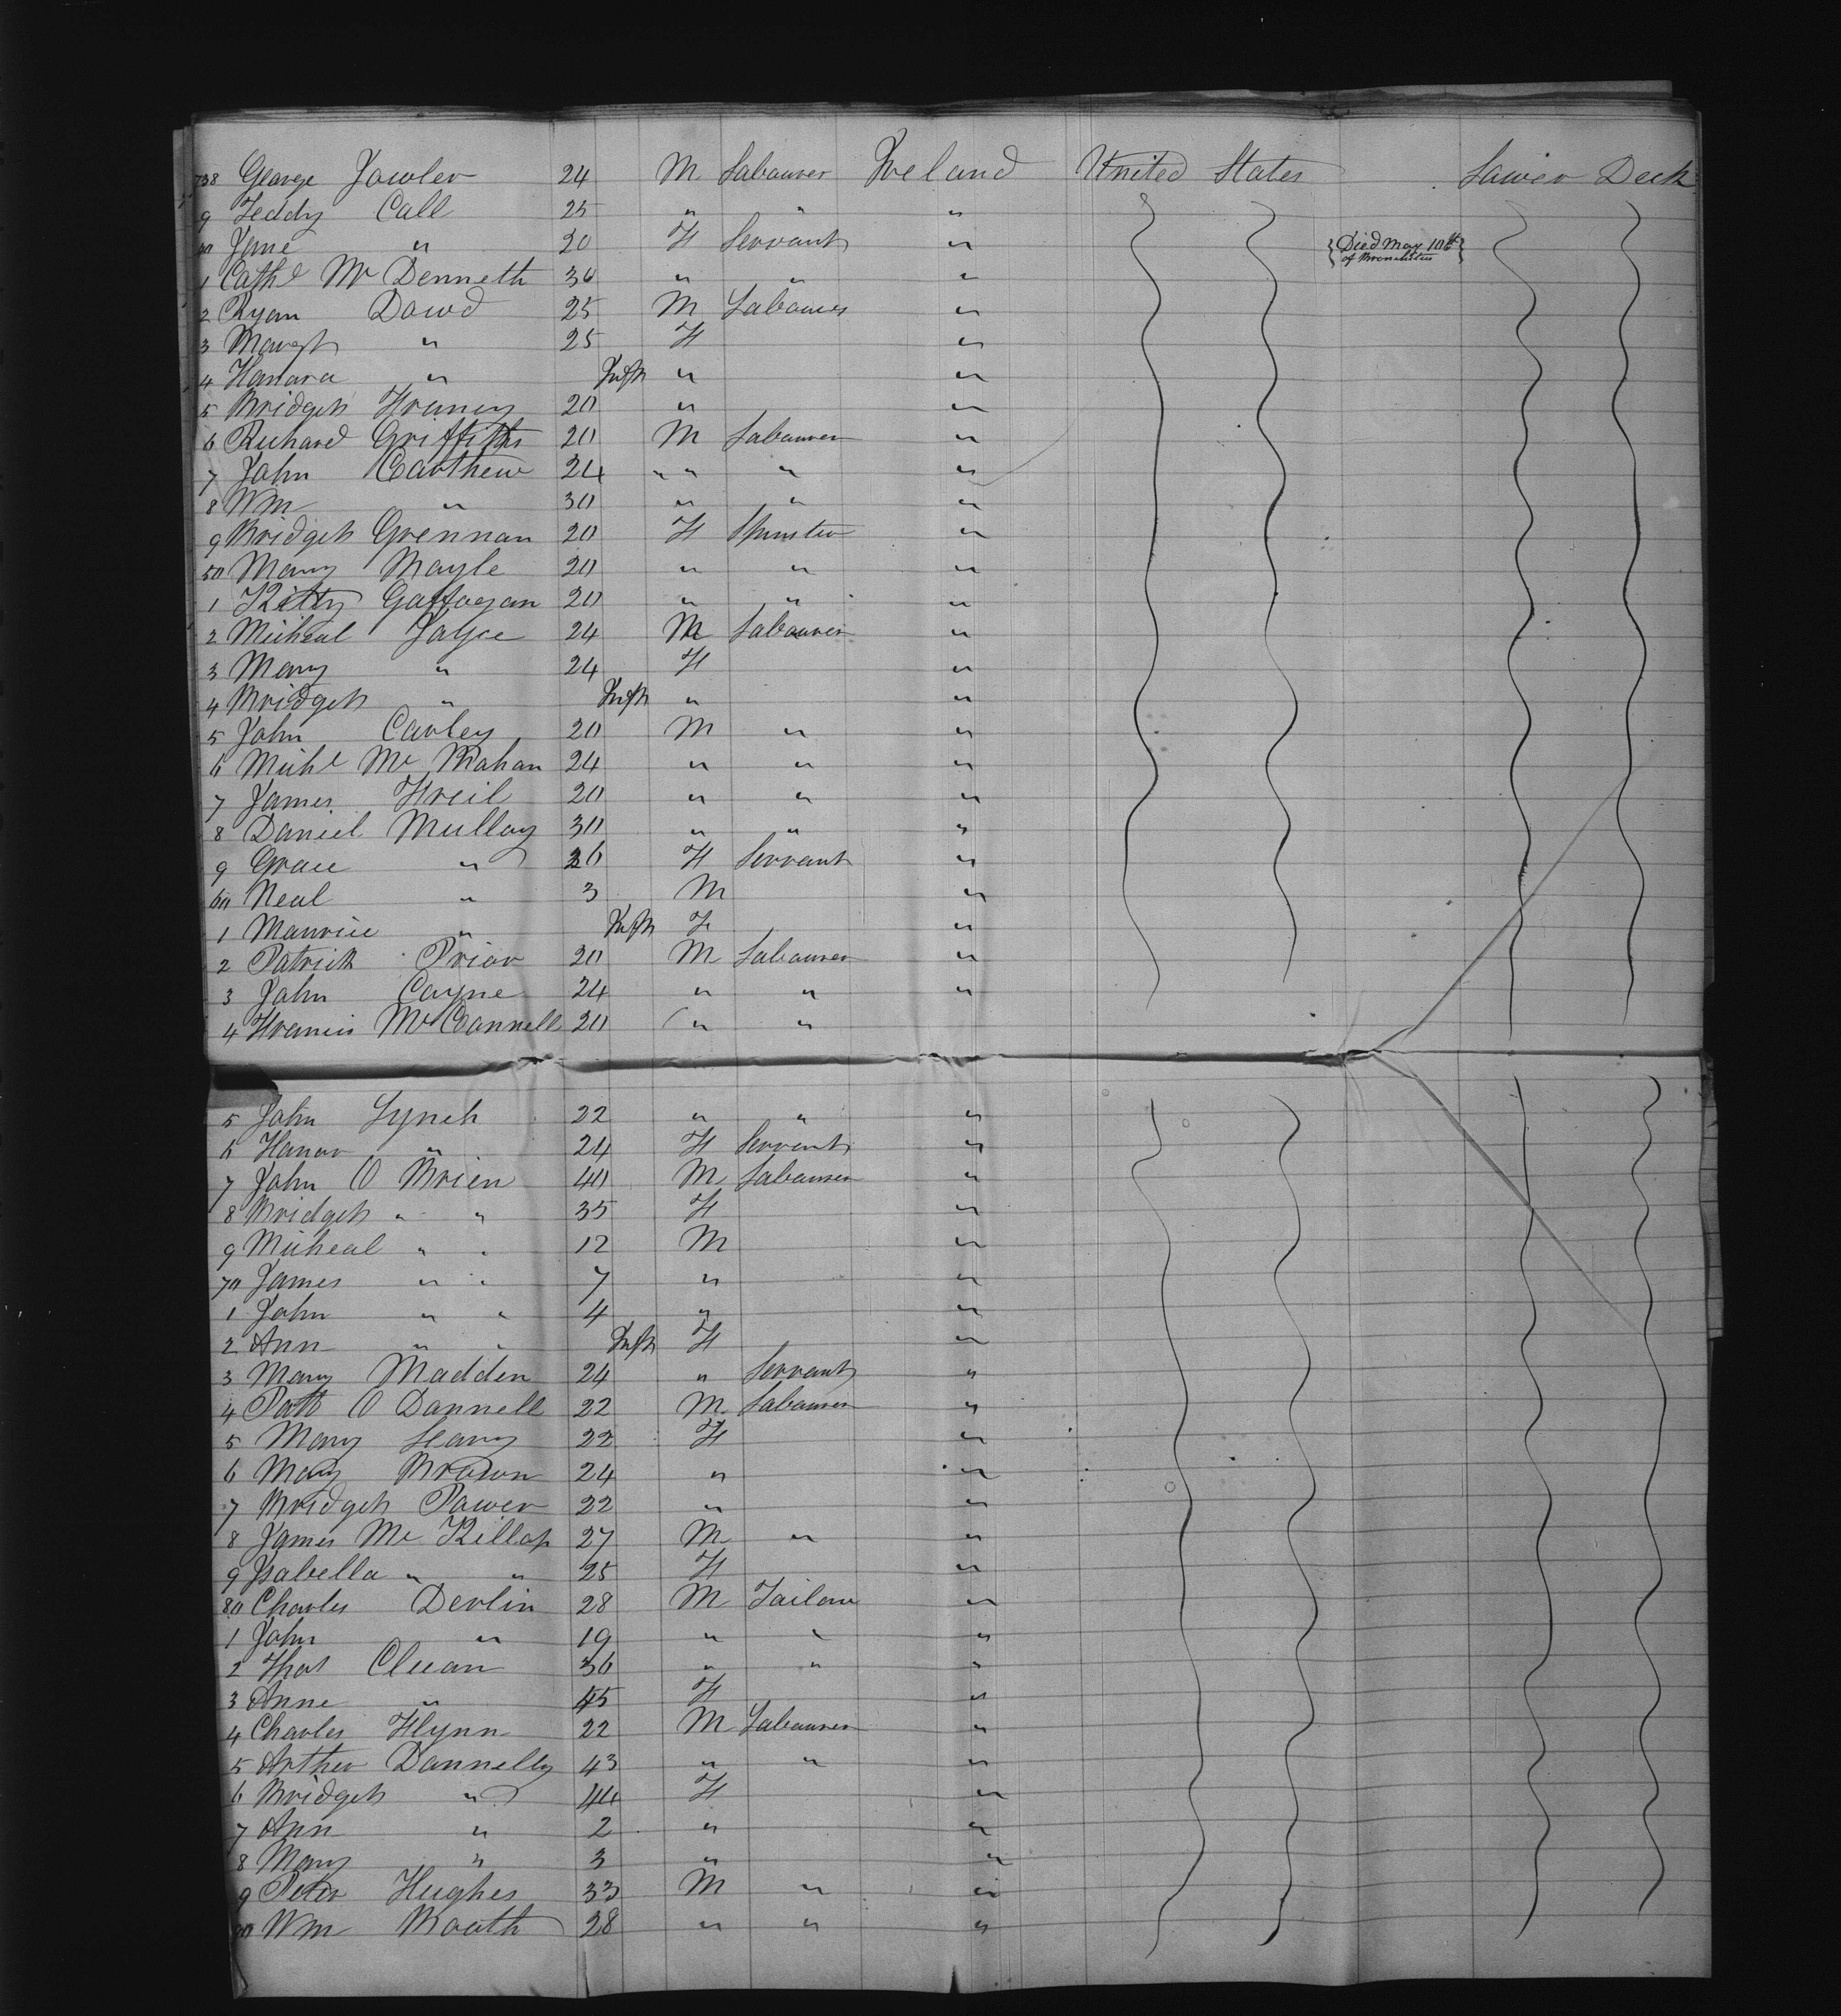 738 George Fowler 24 M Labourer Ireland United States Lower Deck
9 Teddy Call 25 " " "
40 Jane " 20 F Servant " Died May 10th of Bronchitis
1 Cathe Mc Denneth 36 " " "
2 Ryan Dowd 25 M Labourer "
3 Margt " 25 F "
4 Honora " Inft " "
5 Bridget Franey 20 " "
6 Richard Griffiths 20 M Labourer "
7 John Carthew 24 " " " "
8 Wm " 30 " " "
9 Bridget Grennan 20 F Spinster "
50 Mary Mayle 20 " " "
1 Kitty Gaffagan 20 " " "
2 Micheal Joyce 24 M Labourer "
3 Mary " 24 F "
4 Bridget " Inft " "
5 John Carley 20 M " "
6 Michl Mc Mahan 24 " " "
7 James Freil 20 " " "
8 Daniel Mulloy 30 " " "
9 Grace " 26 F Servant "
60 Neal " 3 M "
1 Maurice " Inft F "
2 Patrick Prior 20 M Labourer "
3 John Coyne 24 " " "
4 Francis Mc Connell 20 " "
5 John Lynch 22 " " "
6 Honor " 24 F Servant "
7 John O Brien 40 M Labourer "
8 Bridget " " 35 F "
9 Micheal " " 12 M "
70 James " " 7 " "
1 John " " 4 " "
2 Ann " " Inft F "
3 Mary Madden 24 " Servant "
4 Patt O Donnell 22 M Labourer "
5 Mary Leary 22 F "
6 Mary Brown 24 " "
7 Bridget Power 22 " "
8 James Mc Killop 27 M " "
9 Isabella " " 25 F "
80 Charles Devlin 28 M Tailor "
1 John " 19 " " "
2 Thos Cluan 36 " " "
3 Anne " 45 F "
4 Charles Flynn 22 M Labourer "
5 Arther Donnelly 43 " " "
6 Bridget " 44 F "
7 Ann " 2 " "
8 Mary " 3 " "
9 Peter Hughes 33 M " "
90 Wm Booth 28 " " "